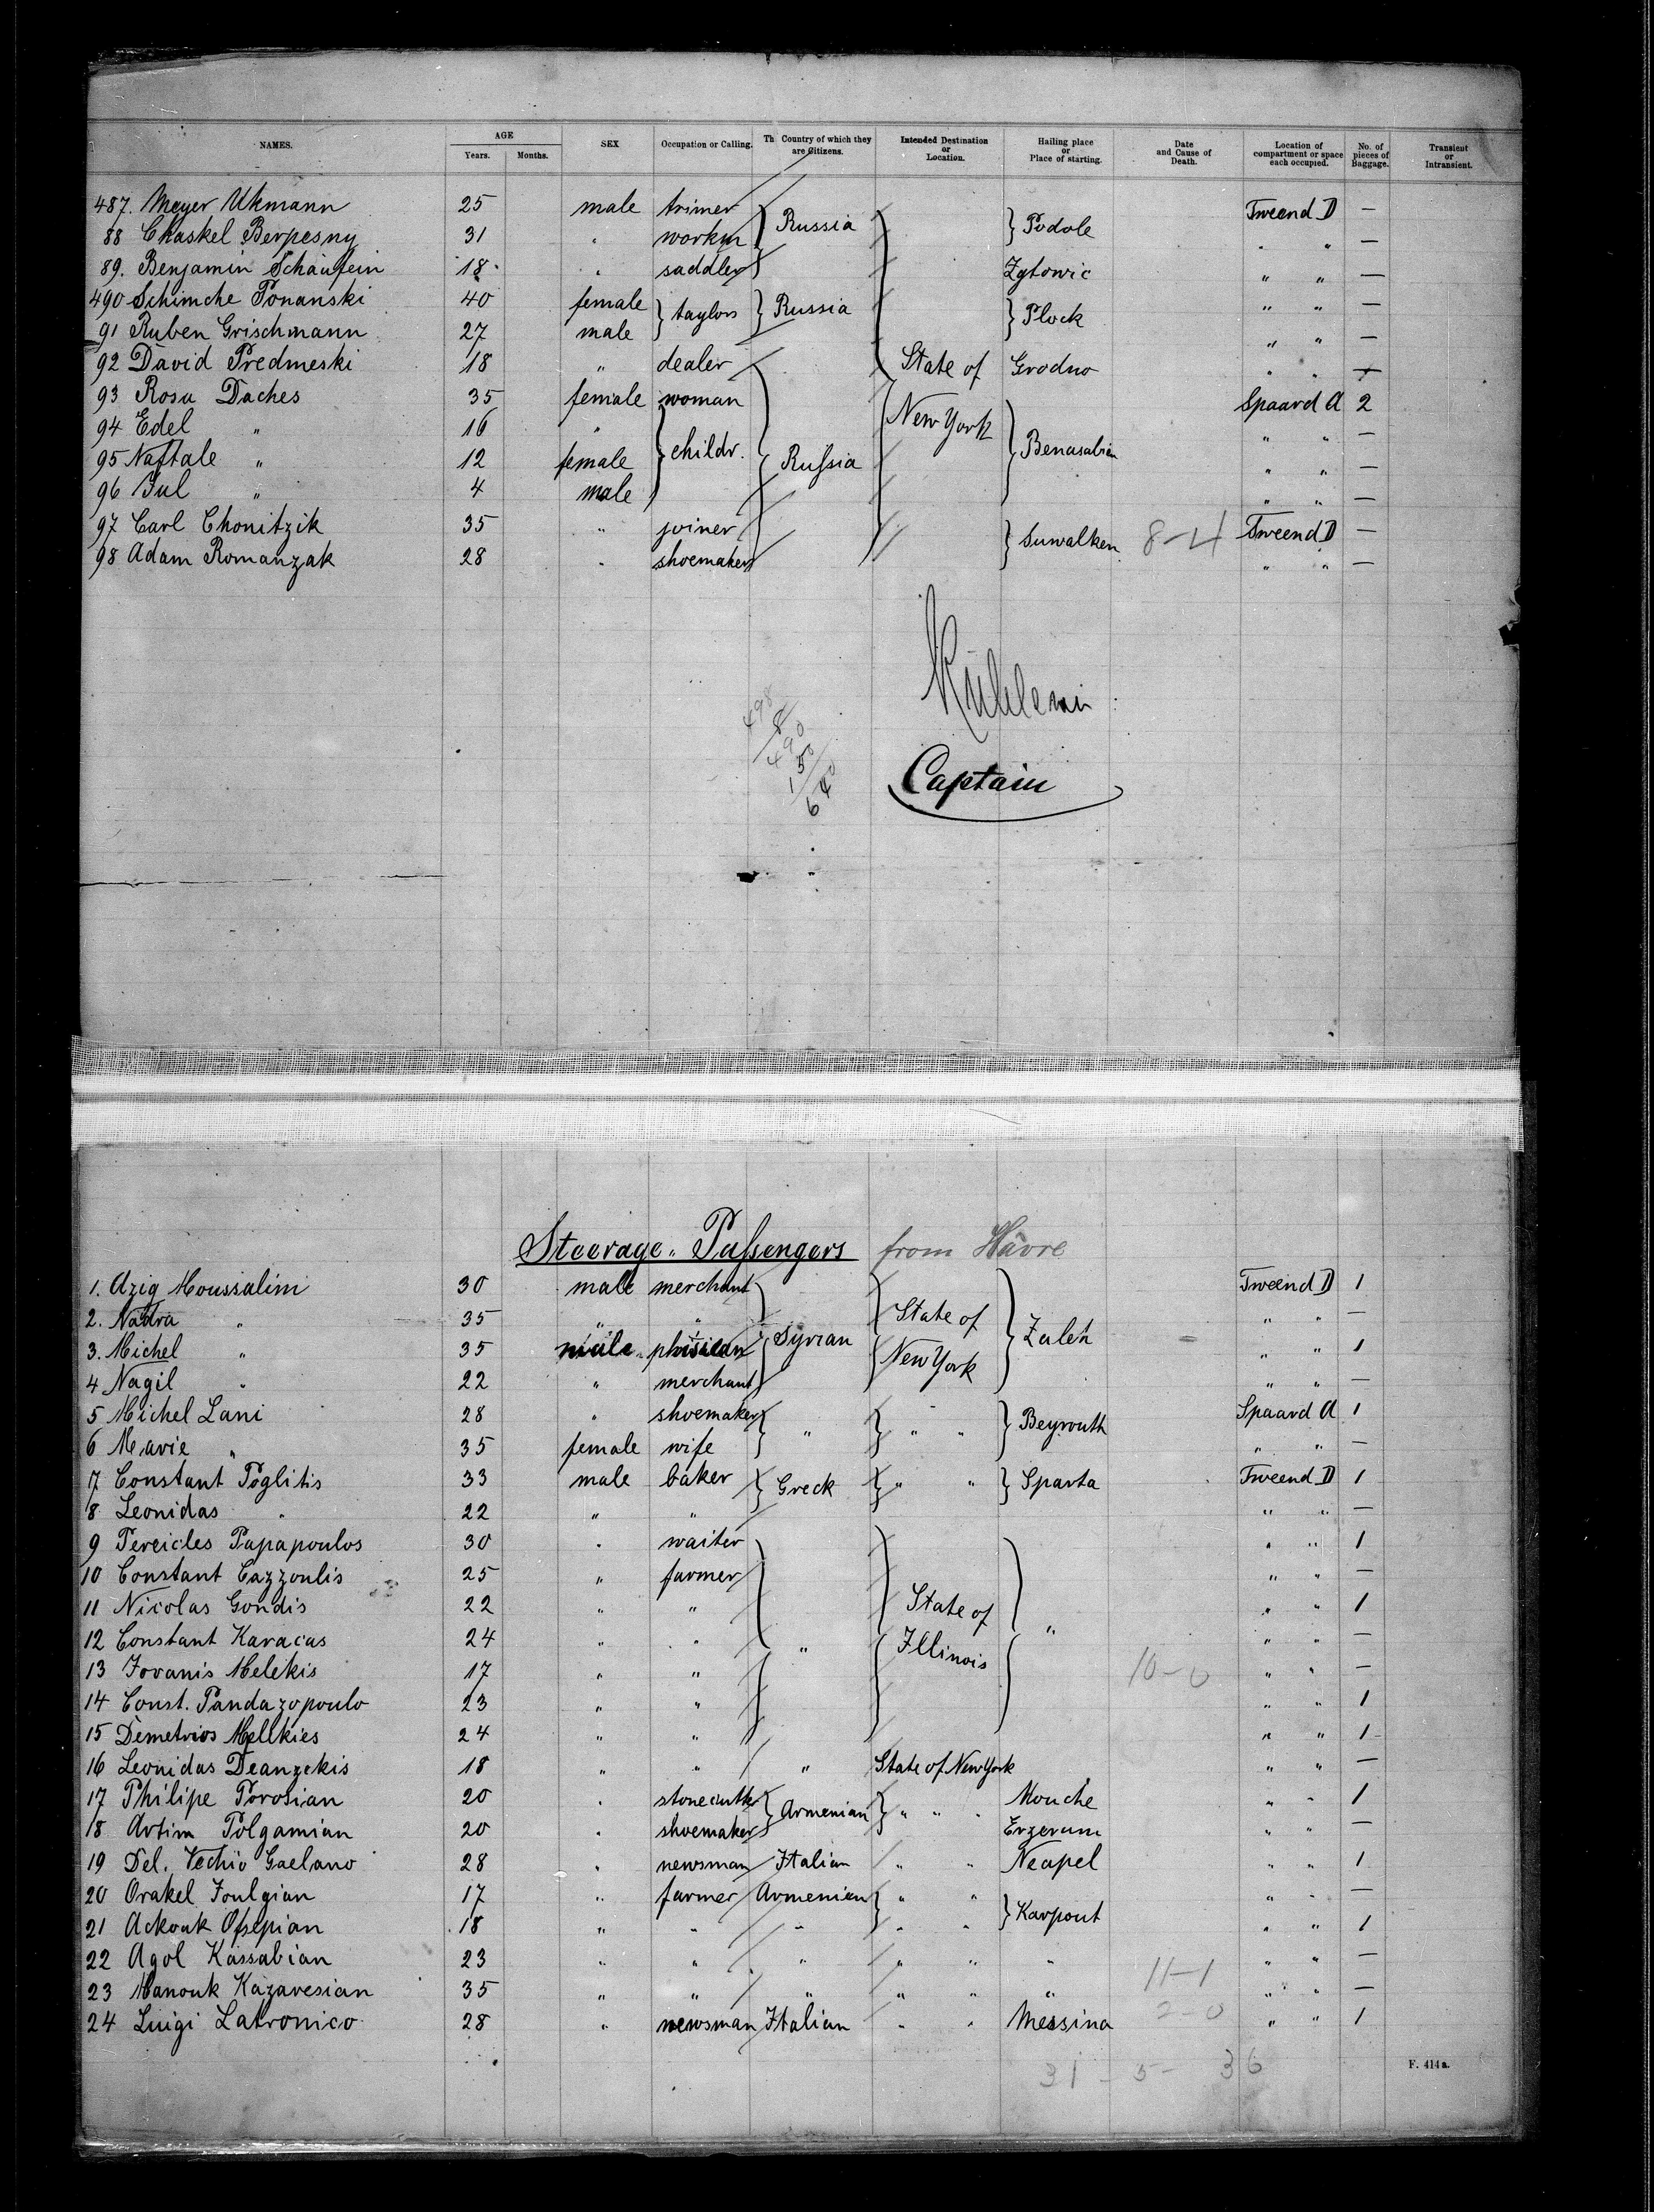 NAMES. AGE Years. Months. SEX Occupation or Calling. Th Country of which they are Citizens. Intended Destination or Location. Hailing place or Place of starting. Date and Cause of Death. Location of compartment or space each occupied. No. of pieces of Baggage. Transient or Intransient.
487. Meyer Ukmann 25 male trimer } Russia } Podole Tweend D —
88 Chaskel Berpesny 31 " workm " " —
89. Benjamin Schaufein 18 " saddler Zytowic " " —
490 Schimche Ponanski 40 female } taylors } Russia } Plock " " —
91 Ruben Grischmann 27 male " " —
92 David Predmeski 18 " dealer State of Grodno " " —
93 Rosa Daches 35 female woman New York Spaard A 2
94 Edel " 16 " } childr. " " —
95 Naftale " 12 female Russia " " —
96 Jul " 4 male " " —
97 Carl Chonitzik 35 " joiner } Suwalken 8-4 Tweend D —
98 Adam Romanzak 28 " shoemaker " " —
498
8
490
150
640
Captain
Steerage " Passengers from Hâvre
1. Azig Moussalim 30 male merchant } Syrian { State of New York } Zaleh Tweend D 1
2. Nadra " 35 " " " " —
3. Michel " 35 male phisician " " 1
4 Nagil " 22 " merchant " " —
5 Michel Lani 28 " shoemaker } " } " " } Beyrouth Spaard A 1
6 Marie " 35 female wife " " —
7 Constant Poglitis 33 male baker } Greek } " " } Sparta Tweend D 1
8 Leonidas " 22 " " " " —
9 Pereicles Papapoulos 30 " waiter " " 1
10 Constant Cazzoulis 25 " farmer " " —
11 Nicolas Gondis 22 " " State of " " " 1
12 Constant Karacas 24 " " " Illinois " " —
13 Jovanis Melekis 17 " " 10-0 " " —
14 Const. Pandazopoulo 23 " " " " 1
15 Demetrios Mellkies 24 " " " " 1
16 Leonidas Deanzekis 18 " " " State of New York " " —
17 Philipe Porosian 20 " stonecutter } Armenian } " " " Mouche " " 1
18 Artim Polgamian 20 " shoemaker Erzerum " " —
19 Del. Vechio Gaelano 28 " newsman Italian " " Neapel " " 1
20 Orakel Joulgian 17 " farmer Armenian } " " } Karpout " " —
21 Ackouk Ofsepian 18 " " " " " " " 1
22 Agol Kassabian 23 " " " " " " " " —
23 Manouk Kazaresian 35 " " " " " " 11-1 " " —
24 Luigi Latronico 28 " newsman Italian " " Messina 2-0 " " 1
31 - 5 - 36
F. 414a.